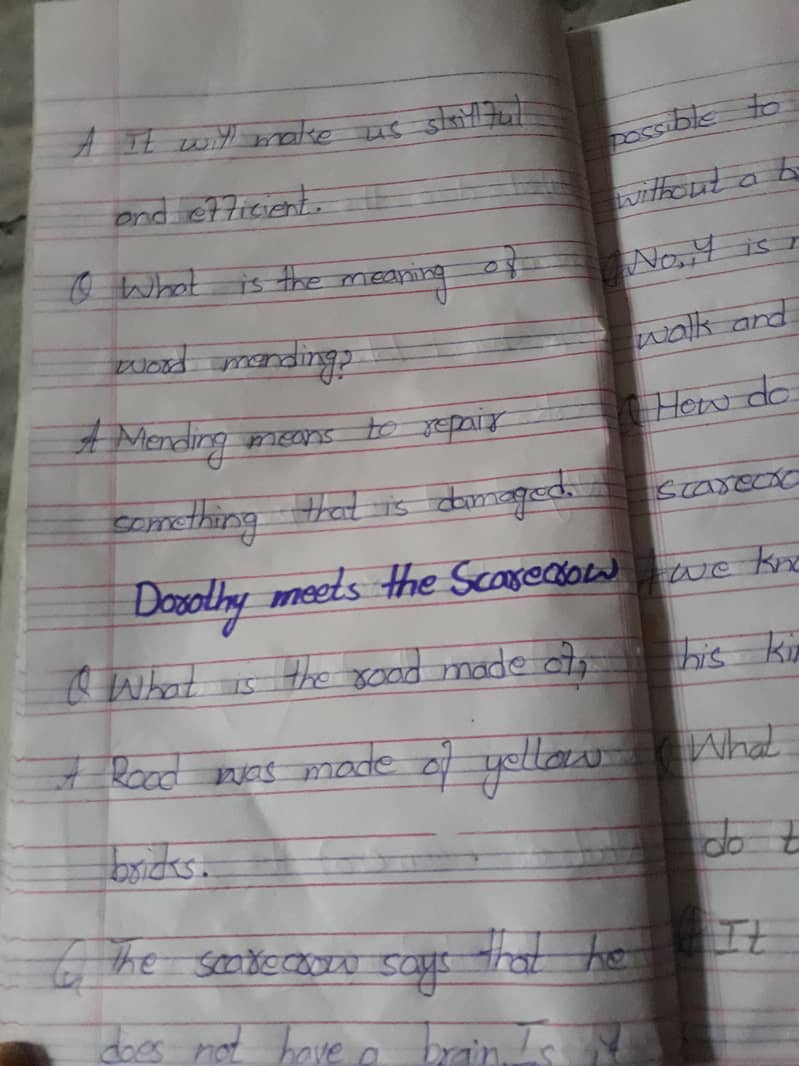 A It will make us skillful
and efficient.
Q What is the meaning of
word mending?
A Mending means to repair
something that is damaged.
Dorothy meets the Scarecrow
Q What is the road made of?
A Road was made of yellow
bricks.
Q The scarecrow says that he
does not have a brain. Is it
possible to
without a
No, it is
walk and
Q How do
scarecro
A we kno
his ki
Q What
do t
A It